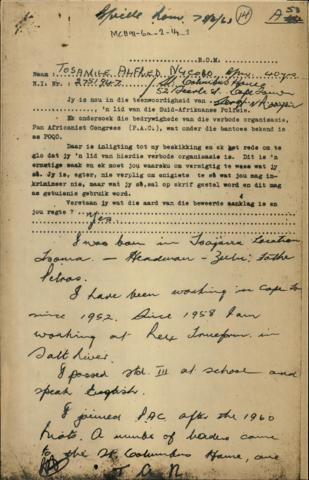 28/3/63 (14) A 53
MCH91-6a-2-14-1
R.O.M.
Naam: Josamile Alfred
N.I. Nr. 2751947
St. Columba's House
Cape Town
Jy is nou in die teenwoordigheid van
'n lid van die Suid-Afrikaanse Polisie.
Ek ondersoek die bedrywighede van die verbode organisasie,
Pan Africanist Congress (P.A.C.), wat onder die bantoes bekend is
as POQO.
Daar is inligting tot my beskikking en ek het rede om te
glo dat jy 'n lid van hierdie verbode organisasie is. Dit is 'n
ernstige saak en ek moet jou waarsku om versigtig te wees wat jy
sê. Jy is, egter, nie verplig om enigiets te sê wat jou mag in-
krimineer nie, maar wat jy sê, sal op skrif gestel word en dit mag
as getuienis gebruik word.
Verstaan jy wat die aard van die beweerde aanklag is en
jou regte? Yes.
I was born in Location
Tsomo. — Headman — father
Petros.
I have been working in Cape Tn
since 1952. Since 1958 I am
working at Rex Trueform in
Salt River.
I passed Std. III at school and
speak English.
I joined P.A.C. after the 1960
riots. A number of leaders came
to the St Columbus Home, one